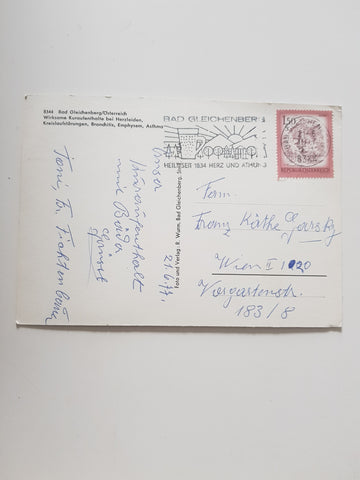 8344 Bad Gleichenberg/Österreich
Wirksame Kuraufenthalte bei Herzleiden,
Kreislaufstörungen, Bronchitis, Emphysem, Asthma
BAD GLEICHENBERG
HEILT SEIT 1834 HERZ UND ATMUNG
1.50
8344
REPUBLIK ÖSTERREICH
Foto und Verlag: R. Wurm, Bad Gleichenberg,
Unser
Kuraufenthalt
und Bäder
Grüsst
Toni,
Fam.
Franz Käthe
Wien II 1020
Vorgartenstr.
183/8